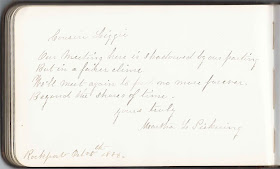 Cousin Lizzie
Our Meeting here is shadowed by our parting
But in a fairer clime
We'll meet again to part no more forever
Beyond the shores of time.
yours truly
Martha L. Pickering
Rockport Oct 18th